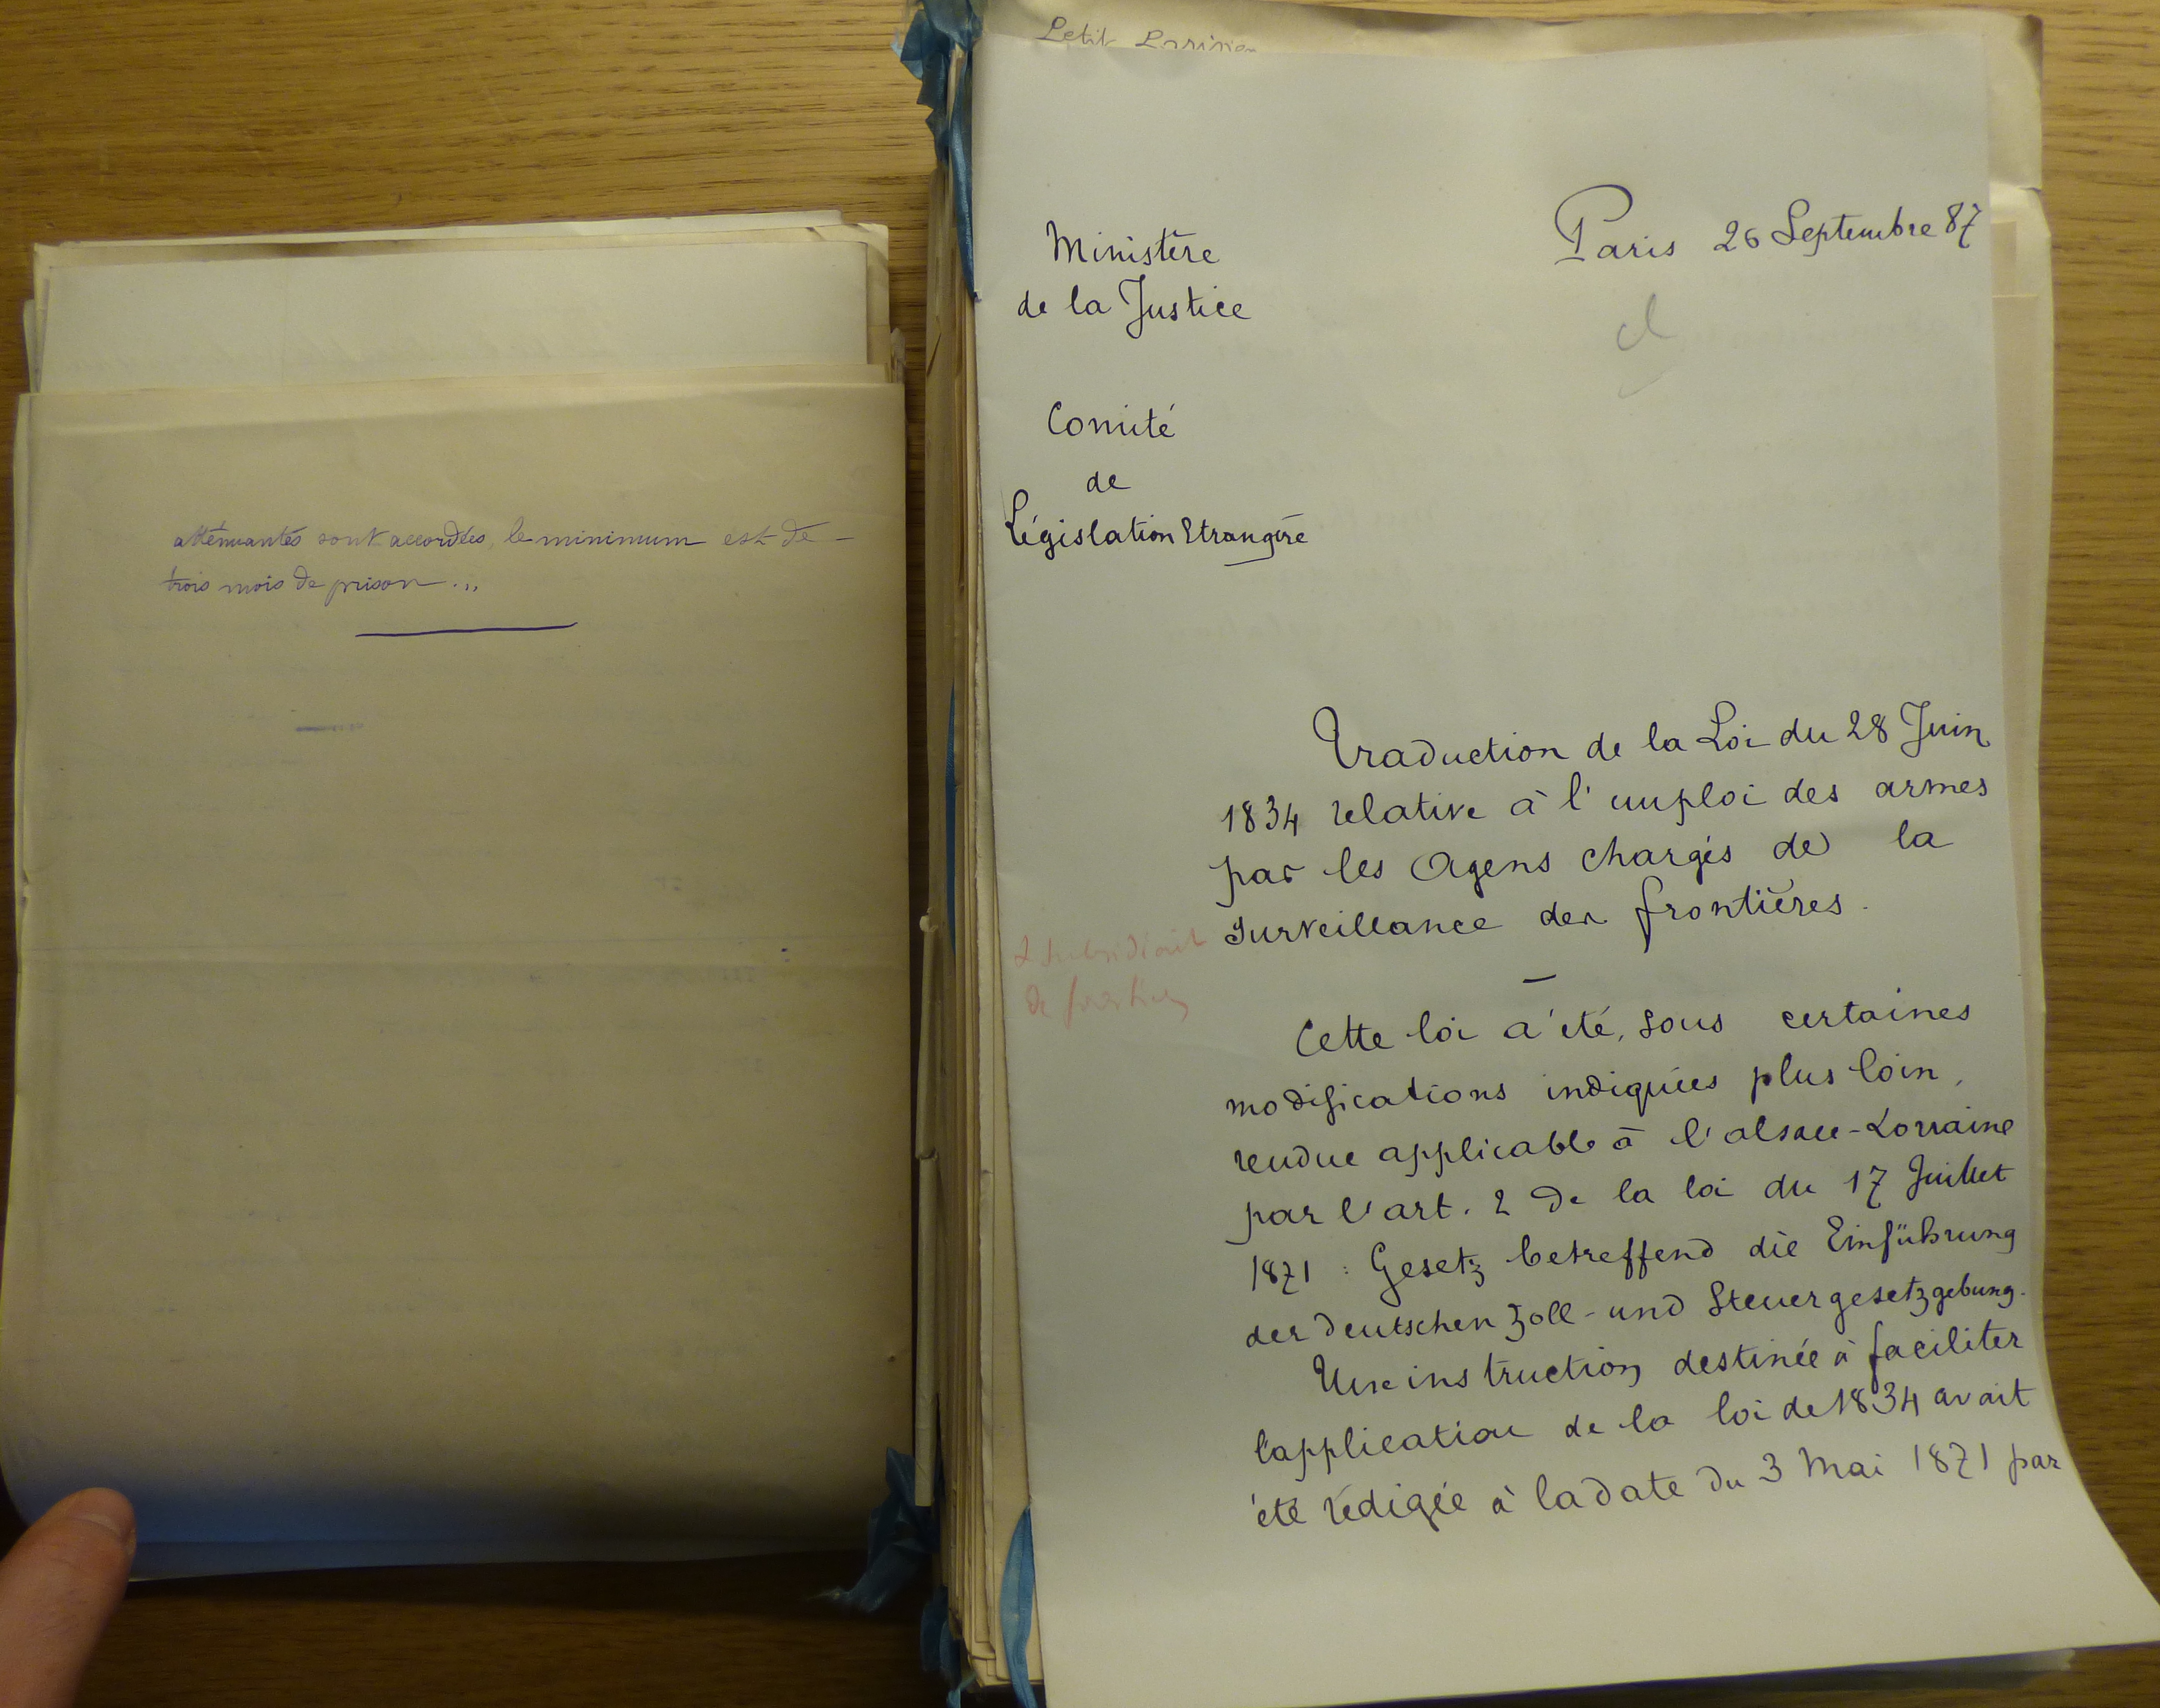 atténuantes sont accordées, le minimum est de –
trois mois de prison . „
Petit Parisien
Ministère
de la Justice
Paris 26 Septembre 87
Comité
de
Législation Etrangère
Traduction de la Loi du 28 Juin
1834 relative à l'emploi des armes
par les Agens chargés de la
surveillance des frontières.
Cette loi a été, sous certaines
modifications indiquées plus loin,
rendue applicable à l'alsace-Lorraine
par l'art. 2 de la loi du 17 Juillet
1871 : Gesetz betreffend die Einführung
der deutschen Zoll- und Steuergesetzgebung.
Une instruction destinée à faciliter
l'application de la loi de 1834 avait
été rédigée à la date du 3 Mai 1871 par